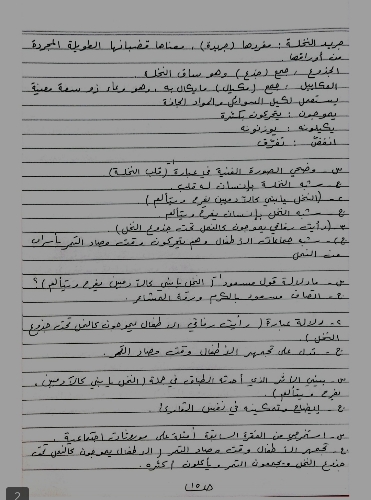 جريد النخلة : مفردها (جريدة) ، معناها قضبانها الطويلة المجردة
من أوراقها .
الجذوع : جمع (جذع) وهو ساق النخلة .
المكاييل : جمع (مكيال) ما يكال به ، وهو وعاء ذو سعة معينة
يستعمل لكيل السوائل والمواد الجافة
يموجون : يتحركون بكثرة
يكيلونه : يوزنونه
انفضّ : تفرّق
س - وضحي الصورة الفنية في عبارة (قلب النخلة)
ج - شبه النخلة بإنسان له قلب .
٢ - (النخل يا بني كالآدميين يفرح ويتألم)
ج - شبه النخل بإنسان يفرح ويتألم .
٣ - (رأيت رفاقي يموجون كالنحل تحت جذوع النخل) .
ج - شبه جماعات الأطفال وهم يتحركون وقت حصاد التمر بأسراب
من النحل
س - ما دلالة قول مسعود : (النخل يا بني كالآدميين يفرح ويتألم) ؟
ج - اتصاف مسعود بالكرم ورقة المشاعر .
٢ - دلالة عبارة (رأيت رفاقي الأطفال يموجون كالنحل تحت جذوع
النخل)
ج - تدل على تجمهر الأطفال وقت حصاد التمر .
س - بيني الأثر الذي أحدثه الطباق في جملة (النخل يا بني كالآدميين ،
يفرح ويتألم)
ج - إيضاح وتمكينه في نفس القارئ .
س - استخرجي من الفقرة السابقة أمثلة على سلوكات اجتماعية .
ج - تجمهر الأطفال وقت حصاد التمر (الأطفال يموجون كالنحل تحت
جذوع النخل ويجمعون التمر ويأكلون أكثره .
2